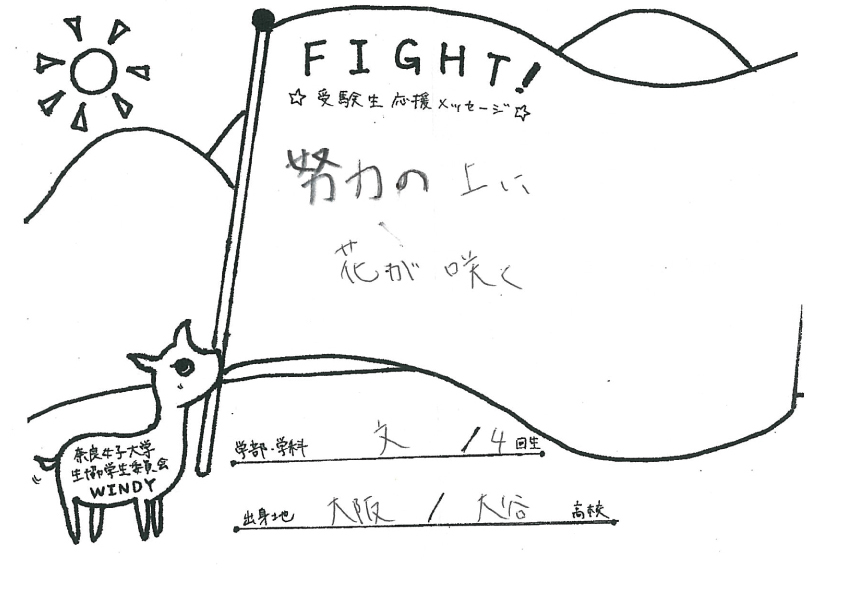 FIGHT!
☆受験生応援メッセージ☆
努力の上に
花が咲く
学部・学科 文 / 4 回生
出身地 大阪 / 大谷 高校
奈良女子大学
生協学生委員会
WINDY